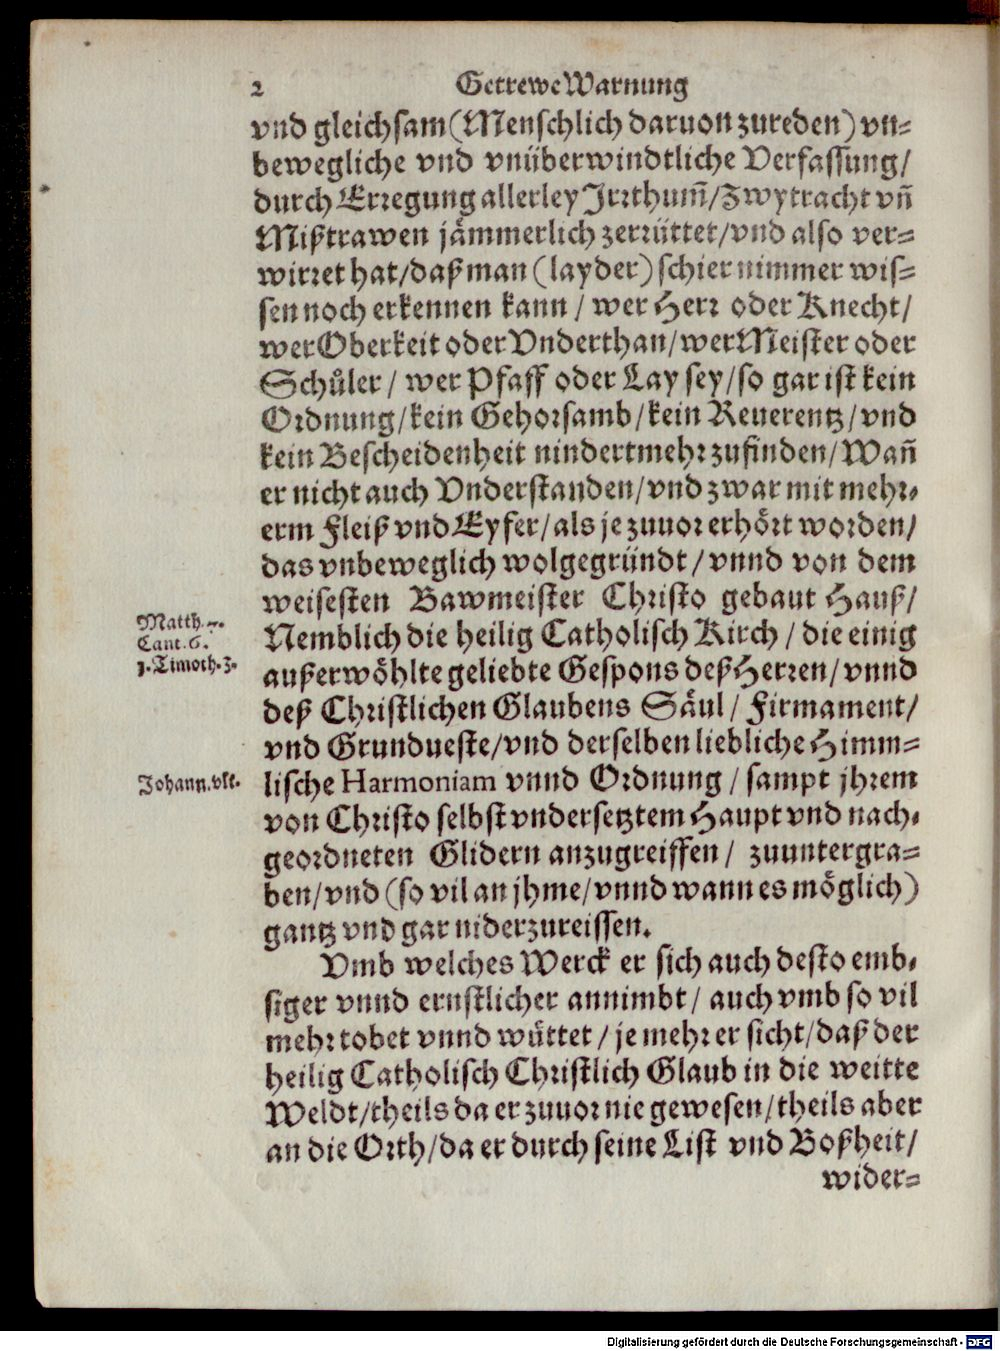 2 Getrewe Warnung
vnd gleichsam (Menschlich daruon zureden) vn-
bewegliche vnd vnüberwindtliche Verfassung/
durch Erregung allerley Irrthum̃/Zwytracht vñ
Mißtrawen jämmerlich zerrüttet/vnd also ver-
wirret hat/daß man (layder) schier nimmer wis-
sen noch erkennen kann / wer Herr oder Knecht/
wer Oberkeit oder Vnderthan/wer Meister oder
Schůler / wer Pfaff oder Lay sey/so gar ist kein
Ordnung/kein Gehorsamb/kein Reuerentz/vnd
kein Bescheidenheit nindertmehr zufinden/Wañ
er nicht auch Vnderstanden/vnd zwar mit mehr-
erm Fleiß vnd Eyfer/als je zuuor erhört worden/
das vnbeweglich wolgegründt / vnnd von dem
weisesten Bawmeister Christo gebaut Hauß/
Matth. 7.
Cant. 6.
1. Timoth. 3.
Nemblich die heilig Catholisch Kirch / die einig
außerwöhlte geliebte Gespons deß Herren/ vnnd
deß Christlichen Glaubens Säul / Firmament/
vnd Grundueste/vnd derselben liebliche Himm-
Johann. vlt.
lische Harmoniam vnnd Ordnung / sampt jhrem
von Christo selbst vndersetztem Haupt vnd nach-
geordneten Glidern anzugreiffen / zuuntergra-
ben/vnd (so vil an jhme/vnnd wann es möglich)
gantz vnd gar niderzureissen.
Vmb welches Werck er sich auch desto emb-
siger vnnd ernstlicher annimbt / auch vmb so vil
mehr tobet vnnd wüttet / je mehr er sicht/daß der
heilig Catholisch Christlich Glaub in die weitte
Weldt/theils da er zuuor nie gewesen/theils aber
an die Orth/da er durch seine List vnd Boßheit/
wider-
Digitalisierung gefördert durch die Deutsche Forschungsgemeinschaft - DFG